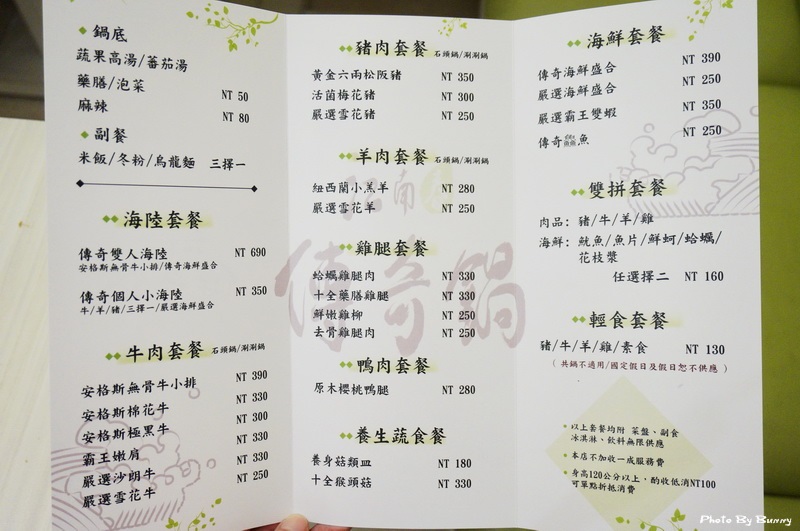 鍋底
蔬果高湯/蕃茄湯
藥膳/泡菜 NT 50
麻辣 NT 80
副餐
米飯/冬粉/烏龍麵 三擇一
海陸套餐
傳奇雙人海陸 NT 690
安格斯無骨牛小排/傳奇海鮮盛合
傳奇個人小海陸 NT 350
牛/羊/豬/三擇一/嚴選海鮮盛合
牛肉套餐 石頭鍋/涮涮鍋
安格斯無骨牛小排 NT 390
安格斯棉花牛 NT 330
安格斯極黑牛 NT 300
霸王嫩肩 NT 330
嚴選沙朗牛 NT 330
嚴選雪花牛 NT 250
豬肉套餐 石頭鍋/涮涮鍋
黃金六兩松阪豬 NT 350
活菌梅花豬 NT 300
嚴選雪花豬 NT 250
羊肉套餐 石頭鍋/涮涮鍋
紐西蘭小羔羊 NT 280
嚴選雪花羊 NT 250
雞腿套餐
蛤蠣雞腿肉 NT 330
十全藥膳雞 NT 330
鮮嫩雞柳 NT 250
去骨雞腿肉 NT 250
鴨肉套餐
原木櫻桃鴨腿 NT 280
養生蔬食餐
養身菇類皿 NT 180
十全猴頭菇 NT 330
傳奇鍋
海鮮套餐
傳奇海鮮盛合 NT 390
嚴選海鮮盛合 NT 250
嚴選霸王雙蝦 NT 350
傳奇鱻魚 NT 250
雙拼套餐
肉品: 豬/牛/羊/雞
海鮮: 魷魚/魚片/鮮蚵/蛤蠣/
花枝漿
任選擇二 NT 160
輕食套餐
豬/牛/羊/雞/素食 NT 130
( 共鍋不適用/國定假日及假日恕不供應 )
以上套餐均附 菜盤、副食
冰淇淋、飲料無限供應
本店不加收一成服務費
身高120公分以上,酌收低消NT100
可單點折抵消費
Photo By Bunny